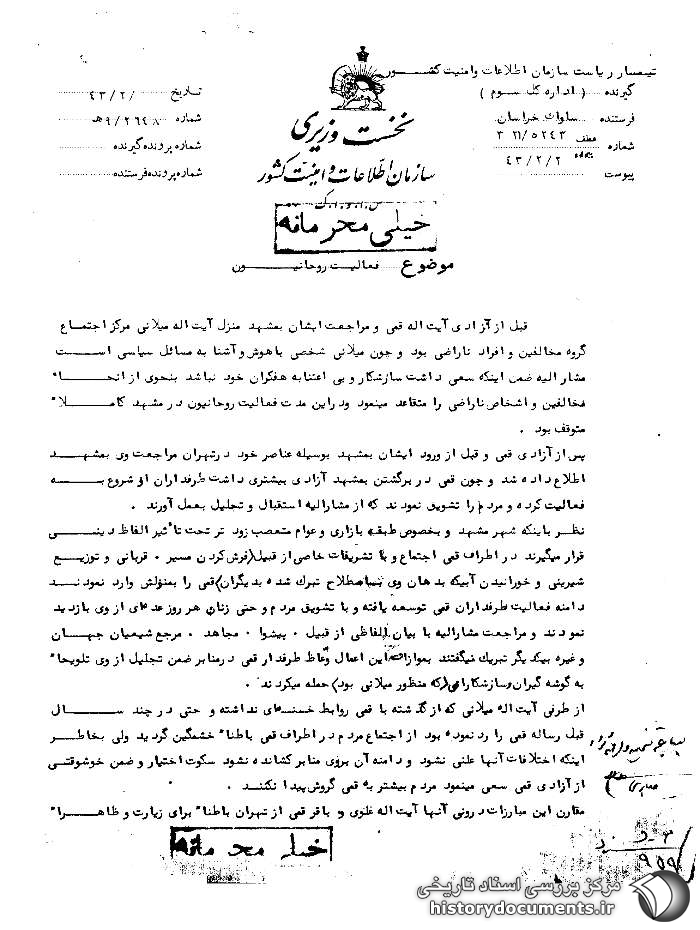 تیمسار ریاست سازمان اطلاعات وامنیت کشور
گیرنده ( اداره کل سوم )
فرستنده ساواک خراسان
شماره عطف ۳۲۱/۵۲۴۳
۴۳/۲/۲
پیوست
نخست وزیری
سازمان اطلاعات و امنیت کشور
س.ا.و.ا.ک
تاریخ ۴۳/۲/
شماره ۹/۲۶۴۸ه
شماره پرونده گیرنده
شماره پرونده فرستنده
خیلی محرمانه
موضوع فعالیت روحانیون
قبل از آزادی آیت اله قمی و مراجعت ایشان بمشهد منزل آیت اله میلانی مرکز اجتماع
گروه مخالفین و افراد ناراضی بود و چون میلانی شخصی باهوش و آشنا به مسائل سیاسی است
مشارالیه ضمن اینکه سعی داشت سازشکار و بی اعتنا به هفکران خود نباشد بنحوی از انحاء
مخالفین و اشخاص ناراضی را متقاعد مینمود ودر این مدت فعالیت روحانیون در مشهد کاملا"
متوقف بود .
پس از آزادی قمی و قبل از ورود ایشان بمشهد بوسیله عناصر خود در تهران مراجعت وی بمشهد
اطلاع داده شد و چون قمی در برگشتن بمشهد آزادی بیشتری داشت طرفداران او شروع به
فعالیت کرده و مردم را تشویق نمودند که از مشارالیه استقبال و تجلیل بعمل آورند .
نظر باینکه شهر مشهد و بخصوص طبقه بازاری و عوام متعصب زود تر تحت تأثیر الفاظ دینی
قرار میگیرند در اطراف قمی اجتماع و با تشریفات خاصی از قبیل (فرش کردن مسیر . قربانی و توزیع
شیرینی و خورانیدن آبیکه بدهان وی باصطلاح تبرک شده بدیگران) قمی را بمنزلش وارد نمودند
دامنه فعالیت طرفداران قمی توسعه یافته و با تشویق مردم و حتی زنان هر روز عده ای از وی بازدید
نمودند و مراجعت مشارالیه با بیان الفاظی از قبیل . پیشوا . مجاهد . مرجع شیعیان جهان
و غیره بیکدیگر تبریک میگفتند بموازات این اعمال وعاظ طرفدار قمی درمنابر ضمن تجلیل از وی تلویحا"
به گوشه گیران وسازشکاران (که منظور میلانی بود) حمله میکردند .
از طرفی آیت اله میلانی که از گذشته با قمی روابط حسنه ای نداشته و حتی در چند سال
قبل رساله قمی را رد نموده بود از اجتماع مردم در اطراف قمی باطنا" خشمگین گردید ولی بخاطر
اینکه اختلافات آنها علنی نشود و دامنه آن بروی منابر کشانده نشود سکوت اختیار و ضمن خوشوقتی
از آزادی قمی سعی مینمود مردم بیشتر به قمی گروش پیدا نکنند .
مقارن این مبارزات درونی آنها آیت اله علوی و باقر قمی از تهران باطنا" برای زیارت و ظاهرا"
خیلی محرمانه
۹۵۹
مرکز بررسی اسناد تاریخی
historydocuments.ir